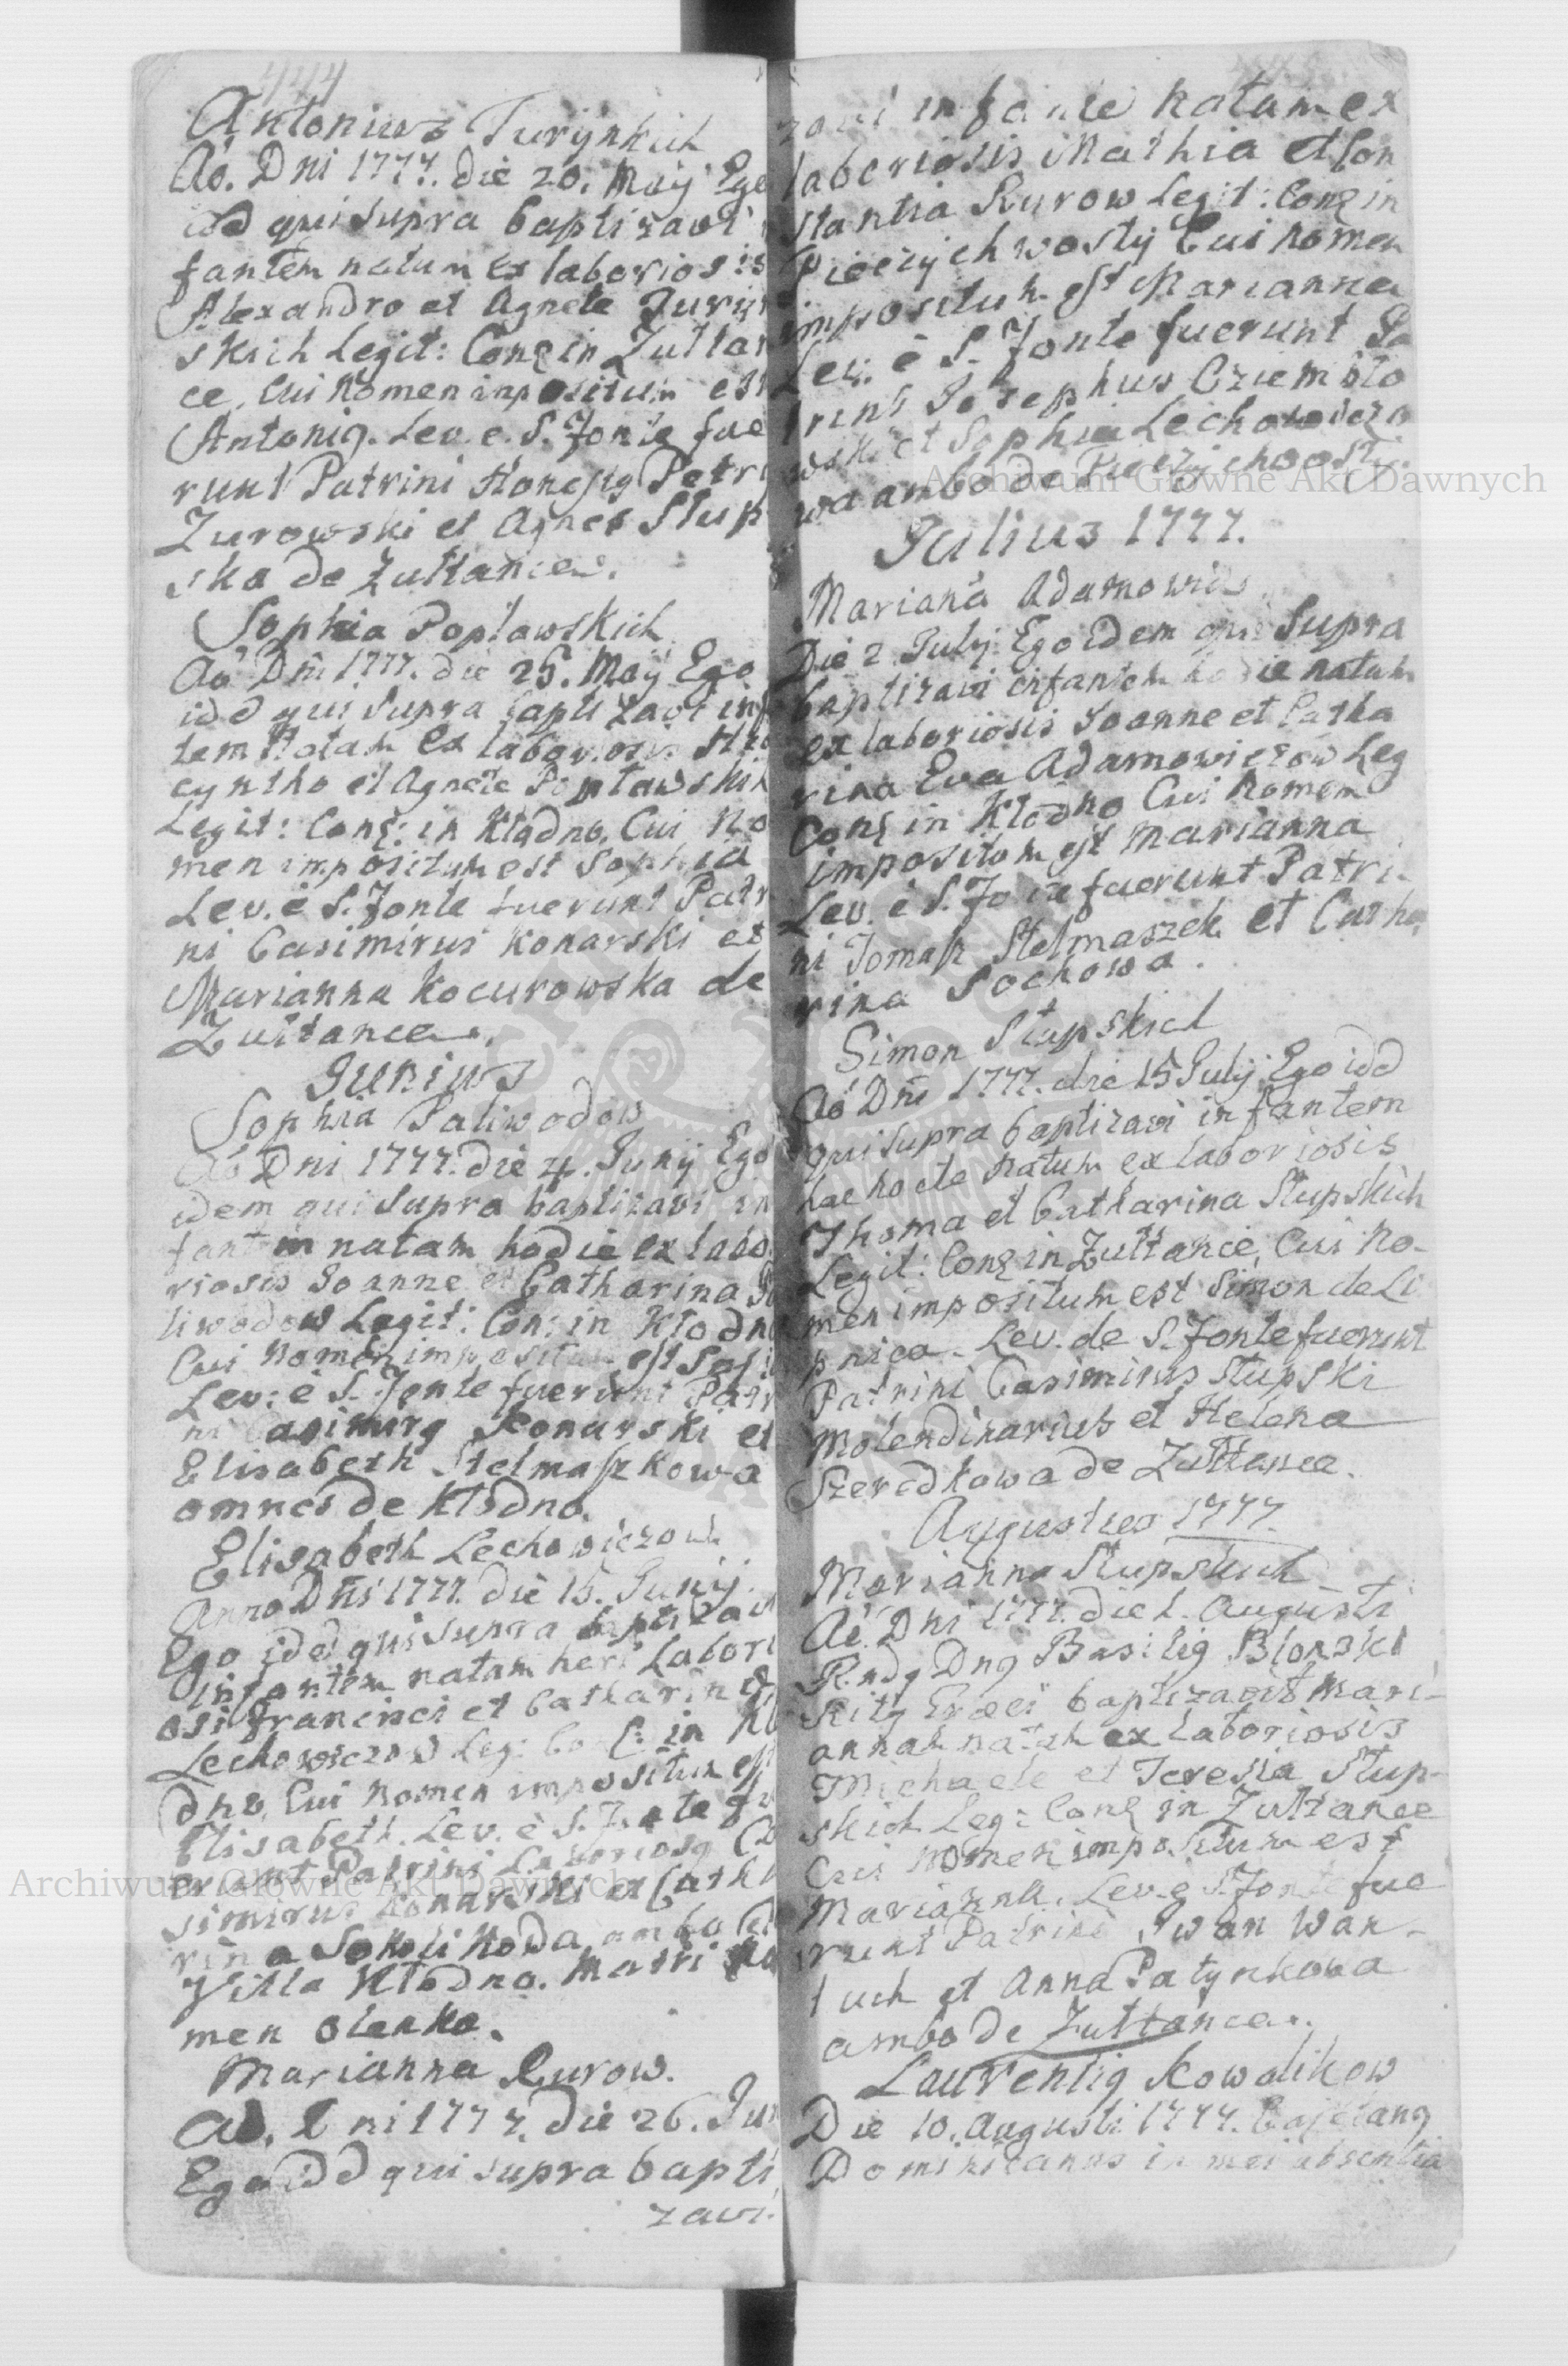 444
Antonius Turynskich
Aõ. Dni 1777. die 20. Maij Ego
idd qui supra baptizavi
fantem natum ex laboriosis
Alexandro et Agnete Turyn
skich Legit: Conz in Zułtań
ce, Cui Nomen impositum est
Antonig. Lev. e. S. Fonte fue
runt Patrini Honestg Petrg
Zurowski et Agnes Słup
ska de Zułtance.
Sophia Popławskich
Aõ Dni 1777. die 25. Maij Ego
idd qui supra baptizavi inf
tem Natam ex laboriosis Hia
cyntho et Agnete Popławskich
Legit: Conz: in Kłodno, Cui No
men impositum est Sophia
Lev. è S. Fonte fuerunt Patr
ni Casimirus Konarski et
Marianna Kocurowska de
Zułtance.
Junius
Sophia Paliwodow
Aõ Dni 1777. die 4. Junij Ego
idem qui supra baptizavi in
fantem natam hodie ex labo
riosis Joanne et Catharina Pa
liwodow Legit: Conz in Kłodno
Cui Nomen impositum est Sofia
Lev: è S. Fonte fuerunt Patr
ni Casimirg Konarski et
Elisabeth Stelmaszkowa
omnes de Kłodno.
Elisabeth Lechowiczow
Anno Dni 1777. die 15. Junij.
Ego idd qui supra baptizavi
infantem natam heri Labori
osi Francisci et Catharina
Lechowiczow Leg: Conz: in Kło
dno, Cui Nomen impositum est
Elisabeth. Lev. è S. Fonte fu
erunt Patrini Laboriosg Ca
simirus Konarski et Catha
rina ambo de
Villa Kłodno. Matri No
men Olenka.
Marianna Kurow.
Aõ. Dni 1777. die 26. Jun
Ego idd qui supra bapti
zavi.
zavi infante Natam ex
laboriosis Mathia et Con
stantia Kurow Legit: Conz in
Pieczychwosty Cui Nomen
impositum est Marianna
Lev. è S. Fonte fuerunt Pa
trini Josephus Cziemoło
wski et Sophia Lechowiczo
wa ambo de Pieczychwosty.
Julius 1777.
Mariana Adamowicz
Die 2 Julij Ego idem qui supra
baptizavi infantem hodie natam
ex laboriosis Joanne et Catha
rina Eva Adamowiczow Leg
Conz in Kłodno Cui Nomen
impositum est Marianna
Lev. è S. Fonte fuerunt Patri
ni Tomasz Stelmaszek et Catha
rina Sochowa.
Simon Słupskich
Aõ Dni 1777. die 15 Julij Ego idd
qui supra baptizavi infantem
hac nocte natum ex laboriosis
Thoma et Catharina Słupskich
Legit: Conz in Zułtance, Cui No-
men impositum est Simon de Li
pnica. Lev. de S. Fonte fuerunt
Patrini Casimirus Słupski
Molendinarius et Helena
Szeredkowa de Zułtance.
Augustus 1777.
Marianna Słupskich
Aõ. Dni 1777. die 1. Augusti
Rndg Dng Basilig Błonski
Ritg Græci baptizavit Mari-
annam natam ex laboriosis
Michaele et Teresia Słup-
skich Leg: Conz in Zułtance
Cui Nomen impositum est
Marianna. Lev. e S. Fonte fue
runt Patrini Iwan Wan-
tuch et Anna Patynkowa
ambo de Zułtance.
Laurentig Kowalikow
Die 10. Augusti 1777. Cajetang
Dominicanus in mei absentia
Archiwum Główne Akt Dawnych
Archiwum Główne Akt Dawnych